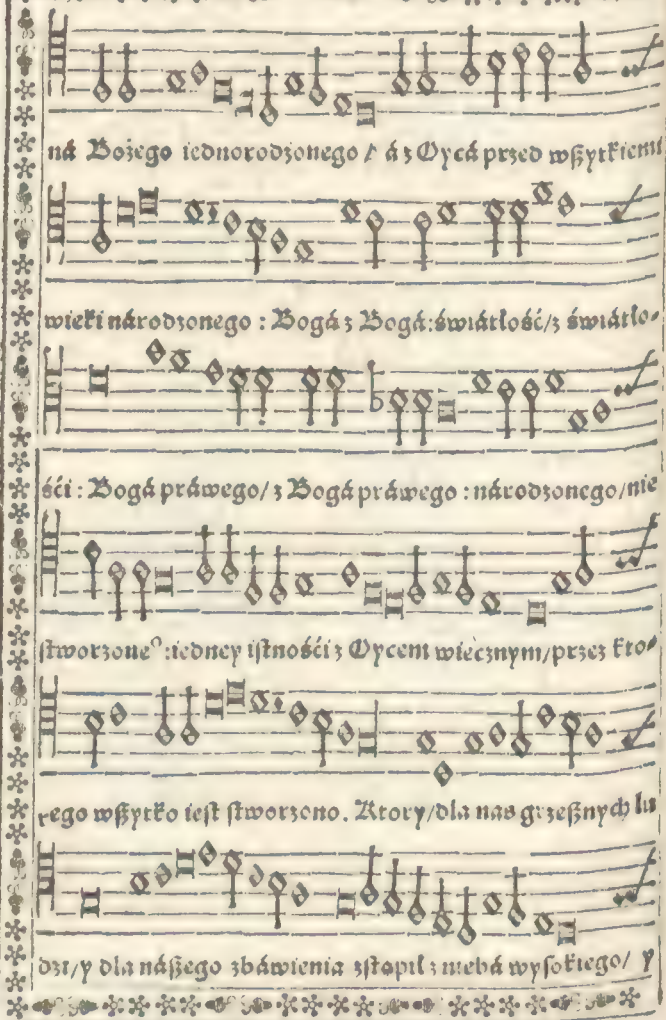 ná Bożego iednorodzonego / á z Oycá przed wßytkiemi
wieki národzonego : Bogá z Bogá:świátłość/z świátło⸗
śći: Bogá práwego/ z Bogá práwego : národzonego/nie
ſtworzone°:iedney iſtnośći z Oycem wiecznym/przez kto⸗
rego wßytko ieſt ſtworzono. Ktory/dla nas grzeßnych lu
dzi/y dla náßego zbáwienia zſtąpił z niebá wyſokiego/ y